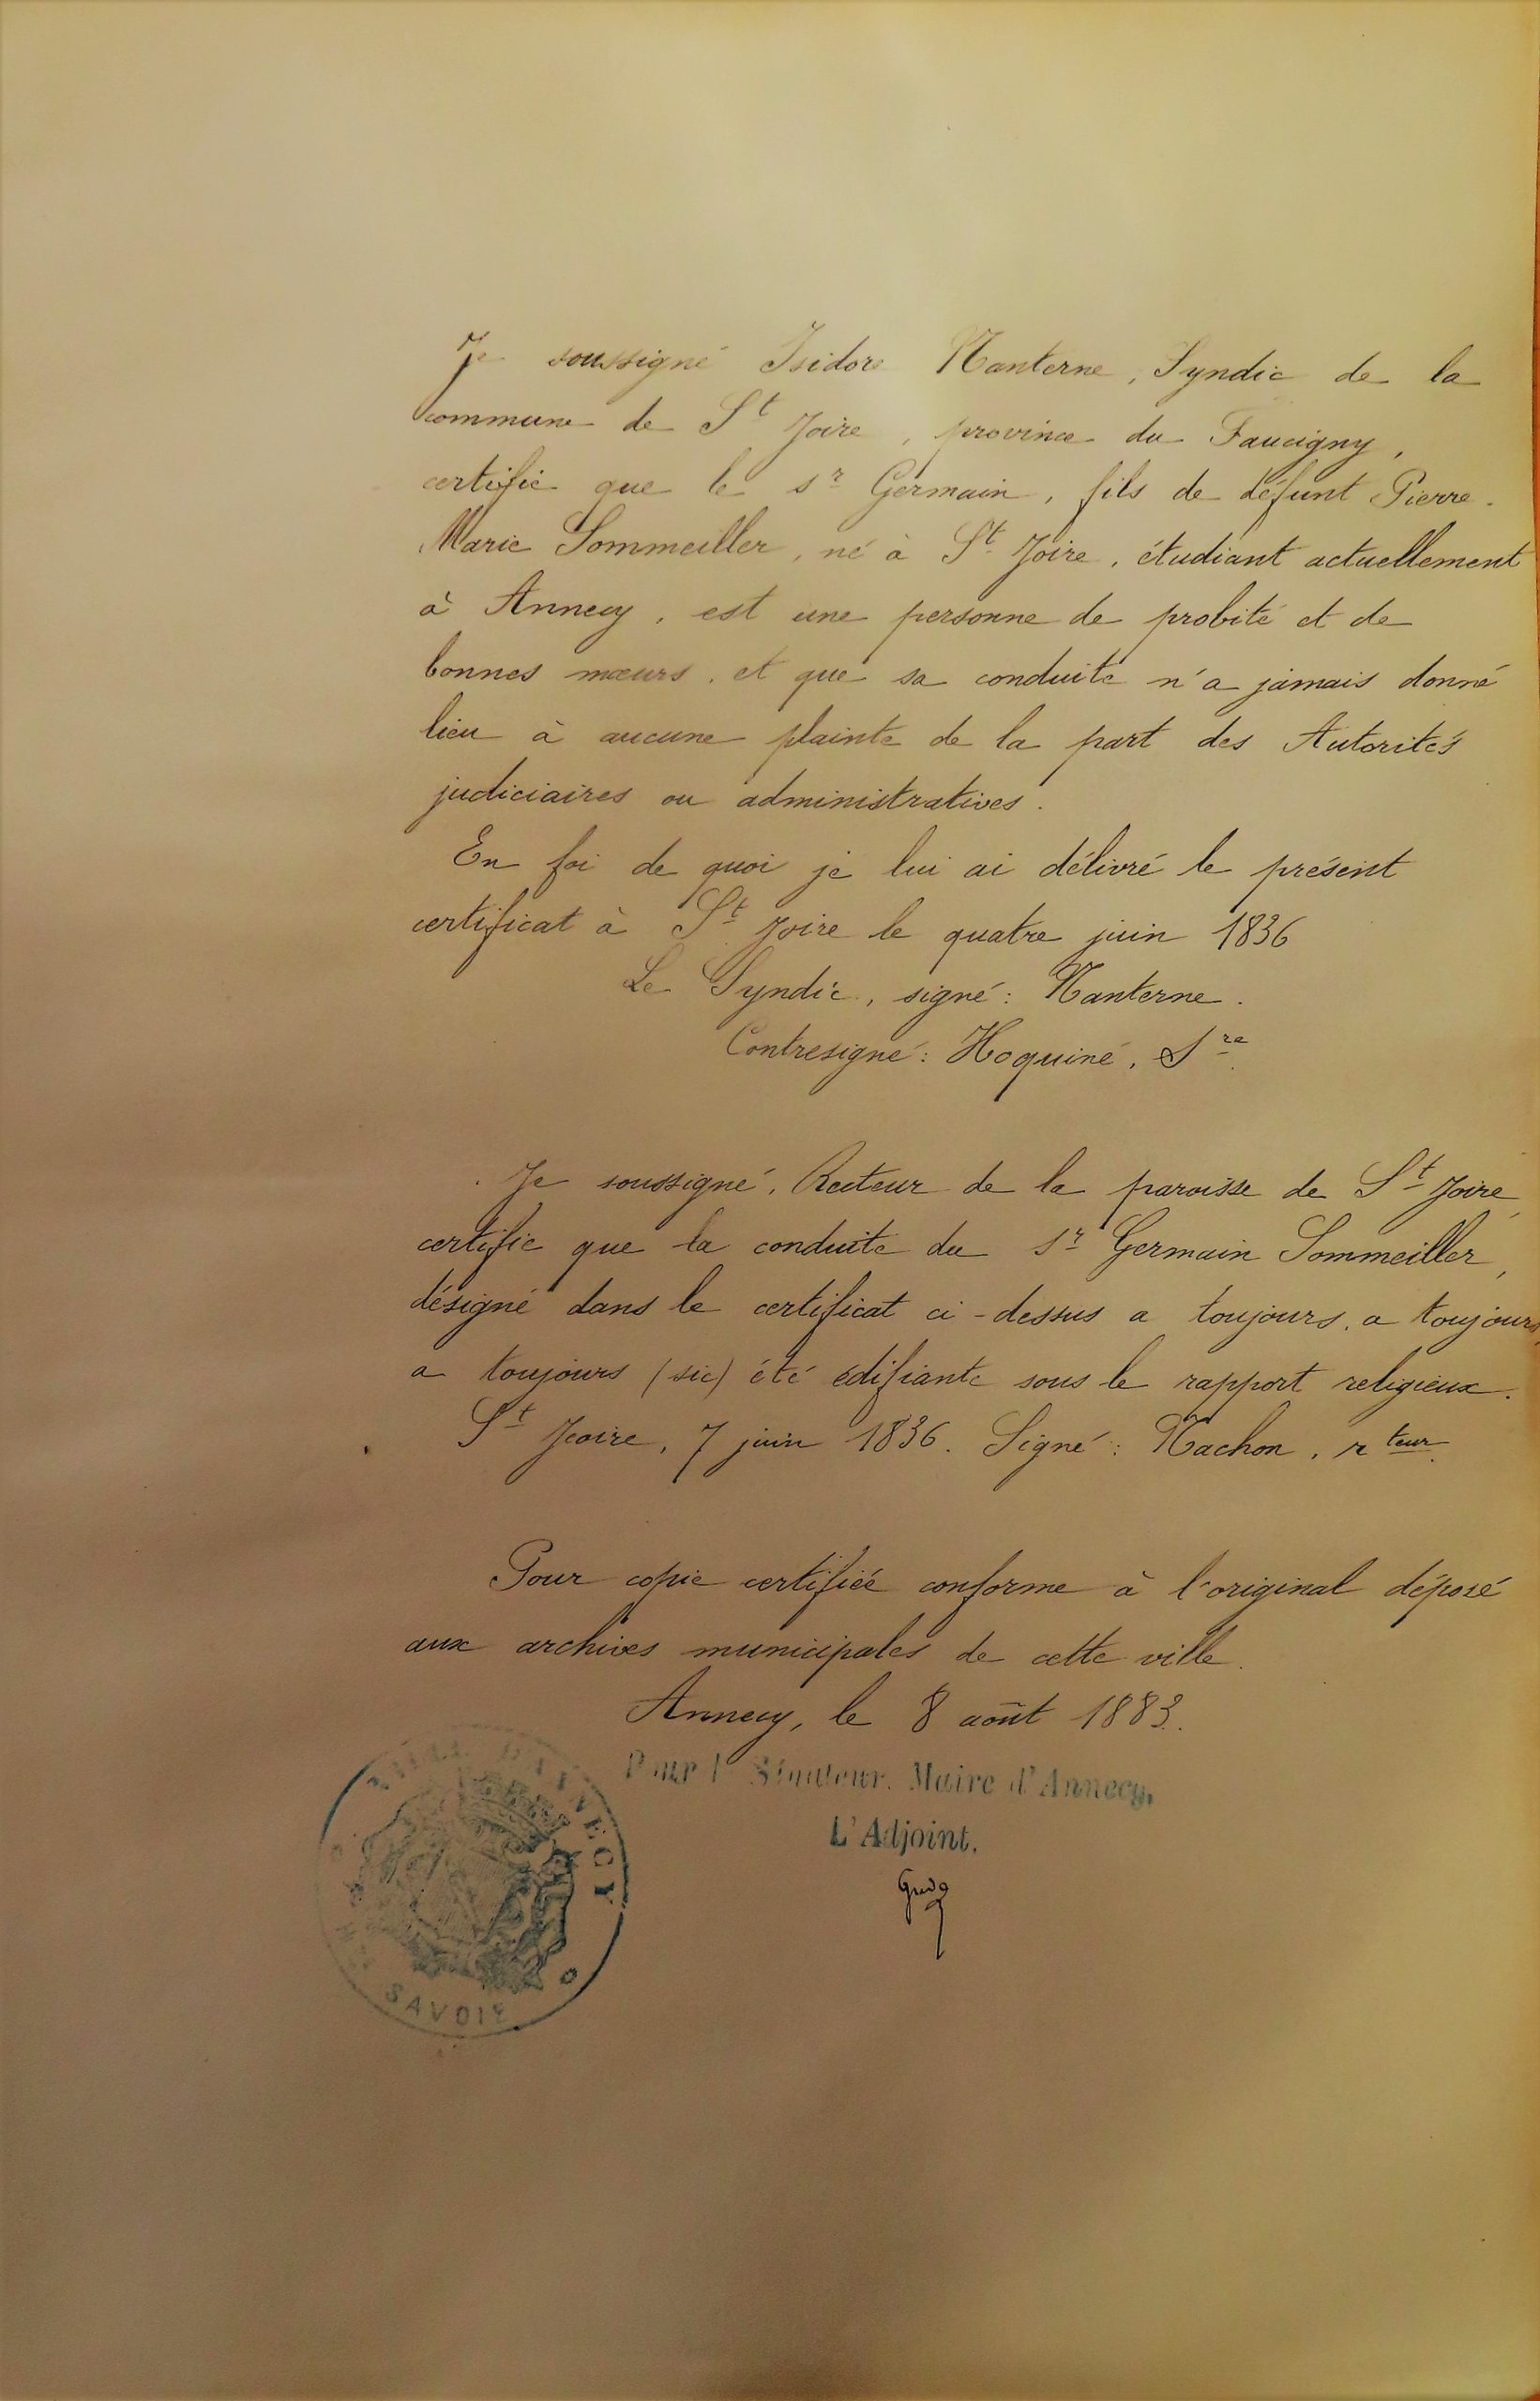 Je soussigné Isidore Nanterne, Syndic de la
commune de St Joire, province du Faucigny,
certifie que le sr Germain, fils de défunt Pierre-
Marie Sommeiller, né à St Joire, étudiant actuellement
à Annecy, est une personne de probité et de
bonnes mœurs, et que sa conduite n'a jamais donné
lieu à aucune plainte de la part des Autorités
judiciaires ou administratives.
En foi de quoi je lui ai délivré le présent
certificat à St Joire le quatre juin 1836
Le Syndic, signé : Nanterne.
Contresigné : Hoquiné, Sre
Je soussigné, Recteur de la paroisse de St Joire,
certifie que la conduite du sr Germain Sommeiller,
désigné dans le certificat ci-dessus a toujours, a toujours,
a toujours (sic) été édifiante sous le rapport religieux.
St Jeoire, 7 juin 1836. Signé : Nachon, rteur
Pour copie certifiée conforme à l'original déposé
aux archives municipales de cette ville.
Annecy, le 8 août 1883.
Pour le Sénateur, Maire d'Annecy,
L'Adjoint,
D'ANNECY
SAVOIE